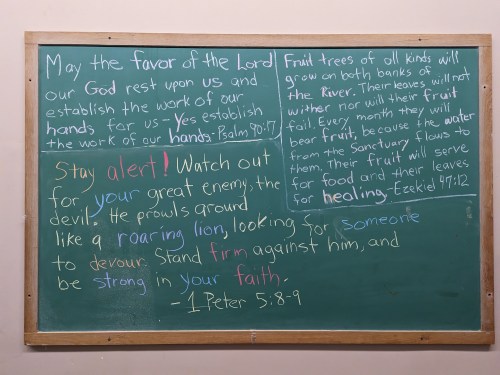 May the favor of the Lord
our God rest upon us and
establish the work of our
hands for us - Yes establish
the work of our hands - Psalm 90:17
Fruit trees of all kinds will
grow on both banks of
the River. Their leaves will not
wither nor will their fruit
fail. Every month they will
bear fruit, because the water
from the Sanctuary flows to
them. Their fruit will serve
for food and their leaves
for healing. - Ezekiel 47:12
Stay alert! Watch out
for your great enemy, the
devil. He prowls around
like a roaring lion, looking for someone
to devour. Stand firm against him, and
be strong in your faith.
- 1 Peter 5:8-9